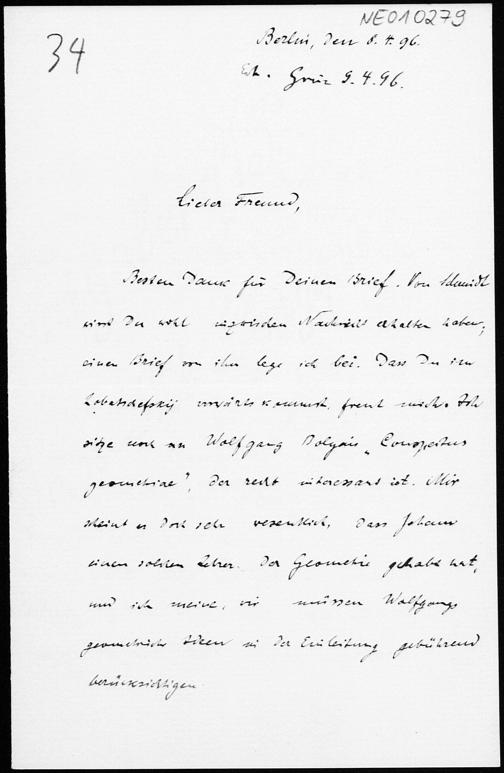 NE010279
34
Berlin, den 8.4.96.
Erh. Grün 9.4.96.
Lieber Freund,
Besten Dank für Deinen Brief. Von Schmidt
wirst Du wohl inzwischen Nachricht erhalten haben;
einen Brief von ihm lege ich bei. Dass Du im
Lobatschefskij vorwärts kommst, freut mich. Ich
sitze noch an Wolfgang Bolyais „Conspectus
geometriae", der recht interessant ist. Mir
scheint es doch sehr wesentlich, dass Johann
einen solchen Lehrer der Geometrie gehabt hat,
und ich meine, wir müssen Wolfgangs
geometrische Ideen in der Einleitung gebührend
berücksichtigen.